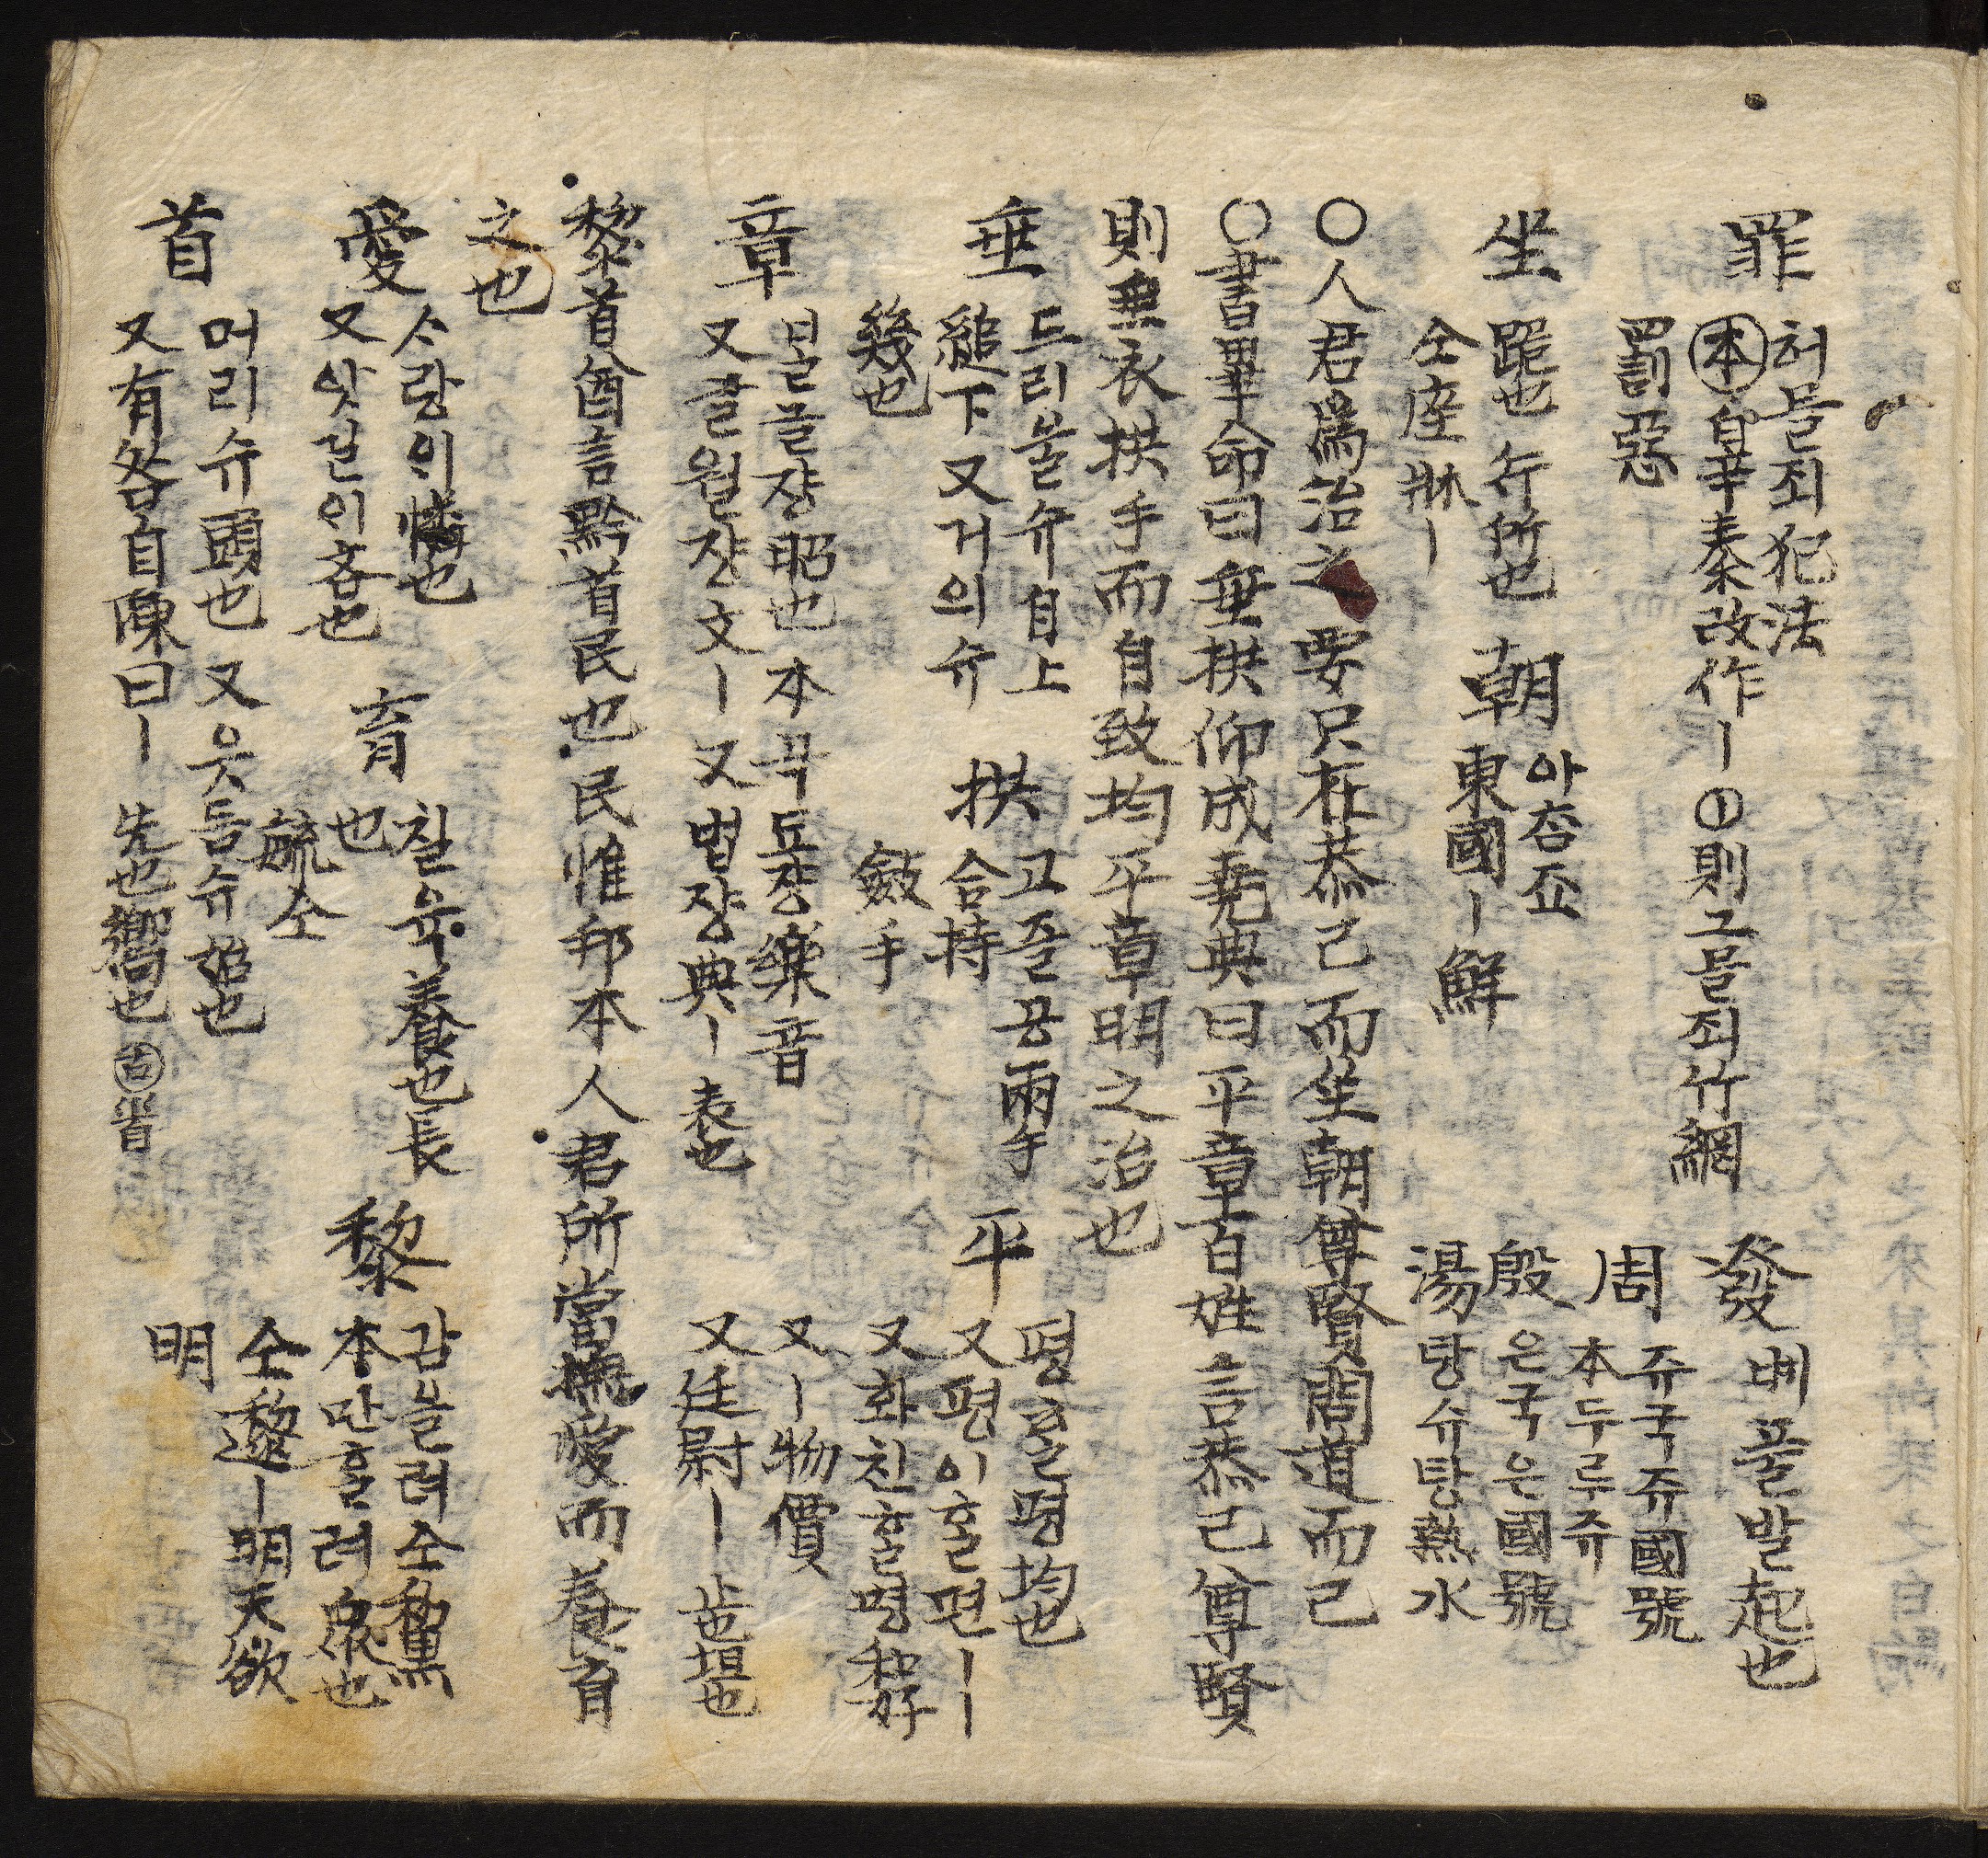 罪 허믈죄犯法
㊍自辛秦改作ㅣ 則그믈죄竹網
罰惡
發 베플발起也
周 쥬국쥬國號
本두루쥬
殷 은국은國號
湯 탕슈탕熱水
坐 跪也 行所也
仝座 牀ㅣ
朝 아츰죠
東國ㅣ鮮
○人君爲治之要只在恭己而坐朝尊賢問道而已
○書畢命曰垂拱仰成堯典曰平章百姓言恭己尊賢
則垂衣拱手而自致均平章明之治也
垂 드리울슈自上
縋下又거의슈
幾也
拱 고즐공兩手
合持
斂手
平 평홀평均也
又편이홀편ㅣㅣ
又화친홀평和好
又ㅣ物價
又廷尉ㅣ
章 글쟝昭也 本 쟝樂音
又글월쟝文ㅣ又법쟝典ㅣ 表也
黎首酋言黔首民也民惟邦本人君所當撫愛而養育
之也
愛 ᄉᆞ랑이憐也
又앗길이吝也
育 칠육養也長
也
毓仝
黎 감블려仝黧黑
本만흘려衆也
仝邌ㅣ明天欲
明
首 머리슈頭也 又웃듬슈 始也
又有咎自陳曰ㅣ 先也嚮也 ㊎𩠐